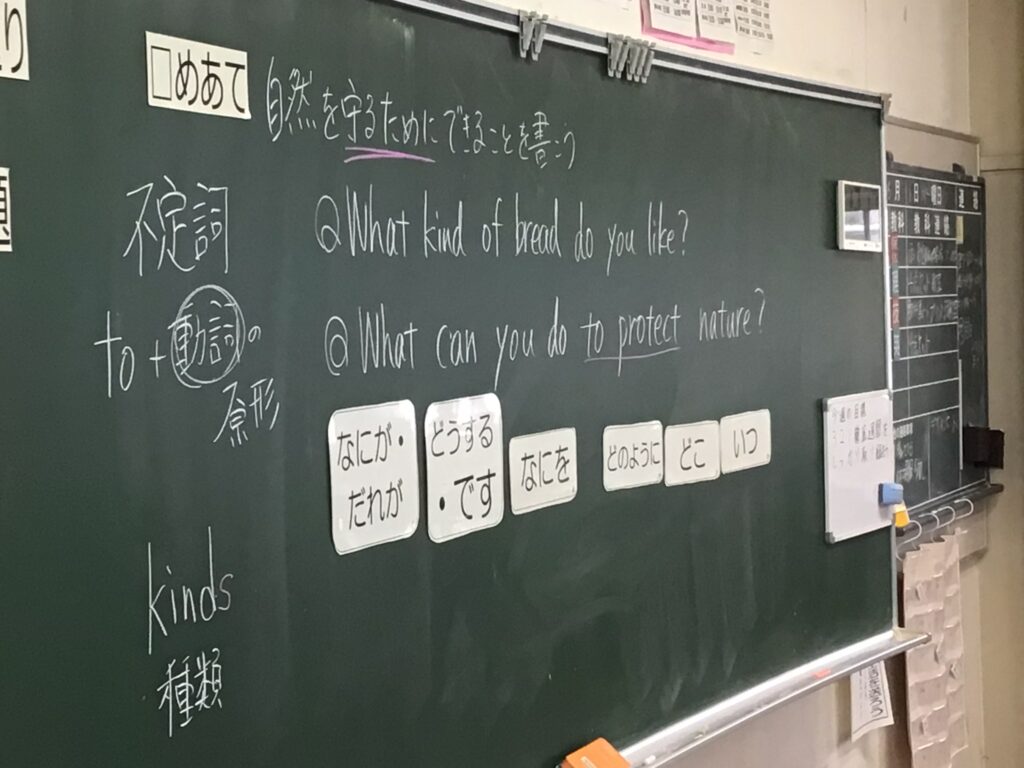 り
□めあて
自然を守るためにできることを書こう
不定詞
to + 動詞の
原形
Q What kind of bread do you like?
Q What can you do to protect nature?
なにが・
だれが
どうする
・です
なにを
どのように
どこ
いつ
kinds
種類
月 日 曜日
今週の目標